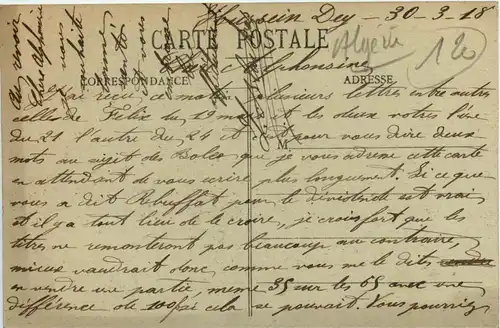 Hussein Dey - 30-3-18
CARTE POSTALE
Algérie
120
CORRESPONDANCE
ADRESSE
Chère Alphonsine
J'ai reçu ce matin plusieurs lettres entre autres
celles de Félix du 19 mars et les deux votres l'une
du 21 l'autre du 24 et c'est pour vous dire deux
M
mots au sujet des Boléo que je vous adresse cette carte
en attendant de vous écrire plus longuement. Si ce que
vous a dit Rebuffat pour le dividende est vrai
et il y a tout lieu de le croire, je crois fort que les
titres ne remonteront pas beaucoup au contraire,
mieux vaudrait donc, comme vous me le dites,
en vendre une partie meme 35 sur les 65 avec une
différence de 100f si cela se pouvait. Vous pourriez
au revoir
chère Alphonsine
je vous
souhaite
bonne
santé
et vous